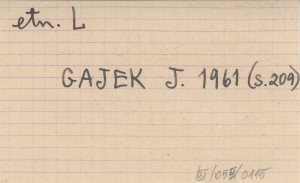 etn. L
GAJEK J. 1961 (s. 209)
/055/0115